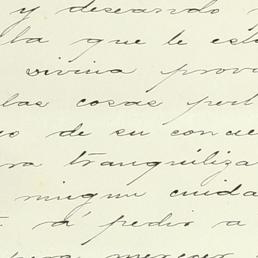 y deseando
la que le est
divina prov
las cosas pert
o de su concie
ra tranquiliza
ningun cuida
á pedir a
para merecer